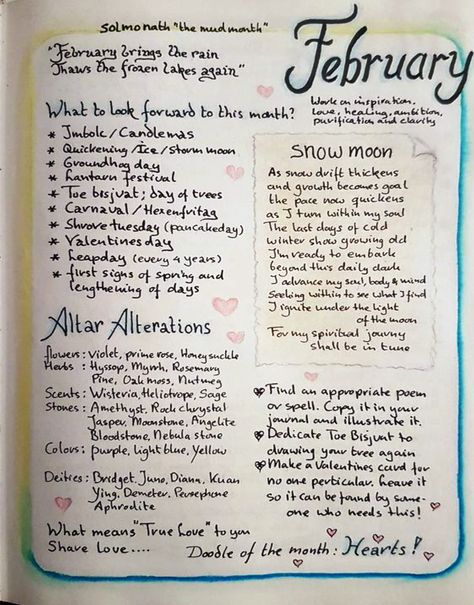 Solmonath "the mud month"
"February brings the rain
Thaws the frozen lakes again"
February
Work on inspiration.
Love, healing, ambition,
purification and clarity
What to look forward to this month?
* Imbolc/Candlemas
* Quickening/Ice/Storm moon
* Groundhog day
* Lantarn Festival
* Toe bisjvat; day of trees
* Carnaval/Hexenfritag
* Shrove tuesday (pancakeday)
* Valentines day
* Leapday (every 4 years)
* first signs of spring and
lengthening of days
Snow moon
As snow drift thickens
and growth becomes goal
the pace now quickens
as I turn within my soul
The last days of cold
winter show growing old
I'm ready to embark
beyond this daily dark
I advance my soul, body & mind
Seeking within to see what I find
I ignite under the light
of the moon
For my spiritual journy
shall be in tune
Altar Alterations
flowers: Violet, prime rose, Honeysuckle
Herbs: Hyssop, Myrrh, Rosemary
Pine, Oak moss, Nutmeg
Scents: Wisteria, Heliotrope, Sage
Stones: Amethyst, Rock chrystal
Jasper, Moonstone, Angelite
Bloodstone, Nebula stone
Colors: purple, light blue, Yellow
Deities: Bridget, Juno, Diana, Kuan
Ying, Demeter, Persephone
Aphrodite
What means "True Love" to you
Share Love....
Find an appropriate poem
or spell. Copy it in your
journal and illustrate it.
Dedicate Toe Bisjvat to
drawing your tree again
Make a Valentines card for
no one perticular. Leave it
so it can be found by some-
one who needs this!
Doodle of the month: Hearts!